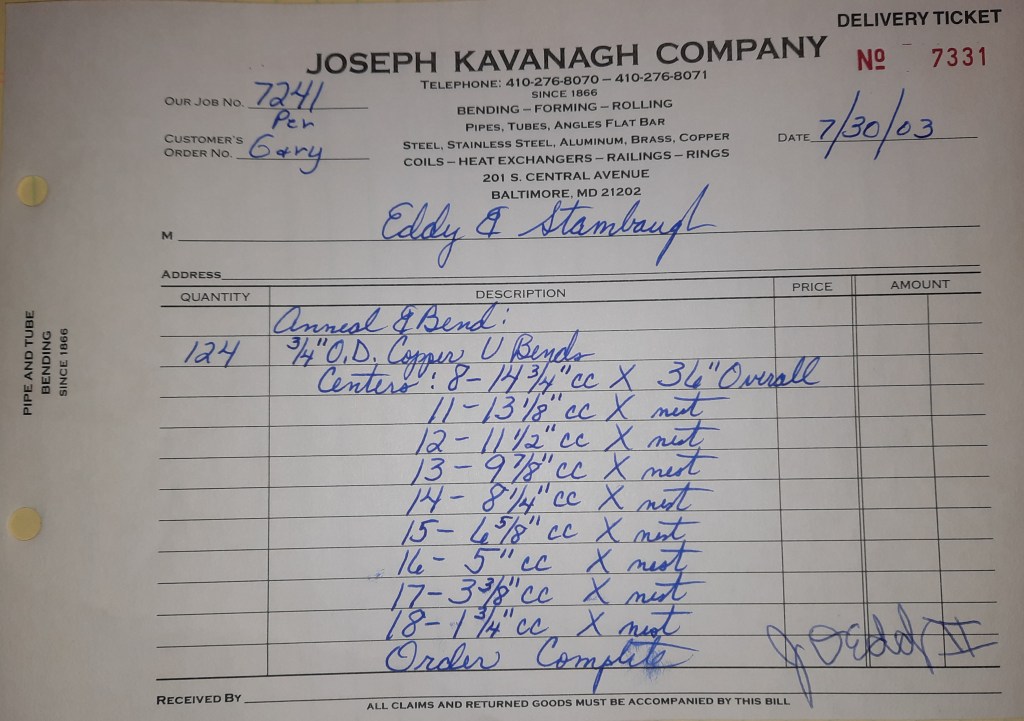 DELIVERY TICKET
JOSEPH KAVANAGH COMPANY
Nº 7331
TELEPHONE: 410-276-8070 – 410-276-8071
SINCE 1866
OUR JOB NO. 7241
BENDING – FORMING – ROLLING
Per
PIPES, TUBES, ANGLES FLAT BAR
CUSTOMER'S
ORDER NO. Gary
STEEL, STAINLESS STEEL, ALUMINUM, BRASS, COPPER
DATE 7/30/03
COILS – HEAT EXCHANGERS – RAILINGS – RINGS
201 S. CENTRAL AVENUE
BALTIMORE, MD 21202
M Eddy & Stambaugh
ADDRESS
QUANTITY DESCRIPTION PRICE AMOUNT
Anneal & Bend:
124 3/4" O.D. Copper U Bends
Centers: 8 – 14 3/4" cc X 36" Overall
11 – 13 1/8" cc X nest
12 – 11 1/2" cc X nest
13 – 9 7/8" cc X nest
14 – 8 1/4" cc X nest
15 – 6 5/8" cc X nest
16 – 5" cc X nest
17 – 3 3/8" cc X nest
18 – 1 3/4" cc X nest
Order Complete
RECEIVED BY
ALL CLAIMS AND RETURNED GOODS MUST BE ACCOMPANIED BY THIS BILL
PIPE AND TUBE
BENDING
SINCE 1866